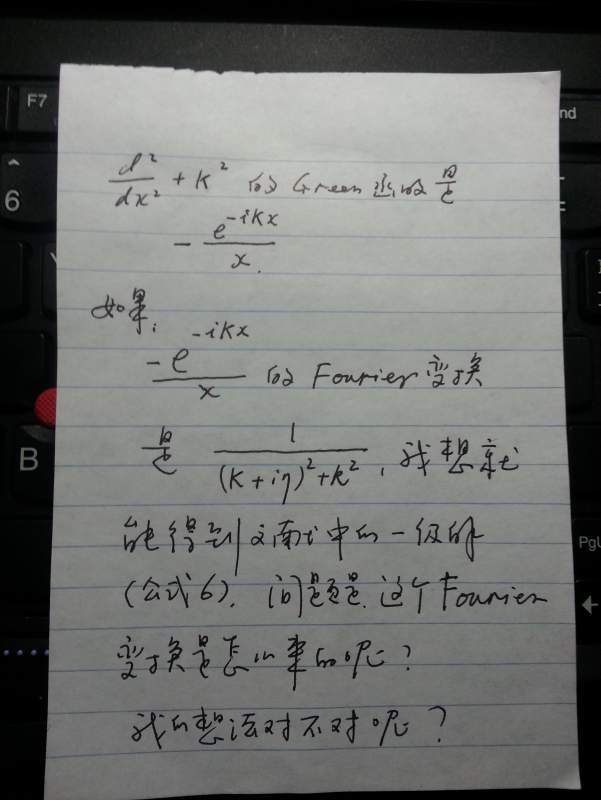 F7
^
6
B
nd
PgU
d²/dx² + K² 的 Green 函数是
- e^{-iKx}/x.
如果,
-e^{-iKx}/x 的 Fourier 变换
是 1/((K+iη)²+k²), 我想就
能得到文献中的一级的
(公式6). 问题是, 这个 Fourier
变换是怎么来的呢?
我的想法对不对呢?